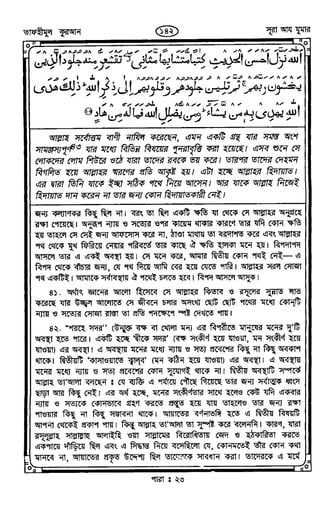 তাফহীমুল কুরআন
১৪২
সূরা আয যুমার
اَللّٰهُ نَزَّلَ اَحْسَنَ الْحَدِيْثِ كِتٰبًا مُّتَشَابِهًا مَّثَانِيَ تَقْشَعِرُّ مِنْهُ جُلُوْدُ الَّذِيْنَ
يَخْشَوْنَ رَبَّهُمْ ثُمَّ تَلِيْنُ جُلُوْدُهُمْ وَقُلُوْبُهُمْ اِلٰى ذِكْرِ اللّٰهِ ذٰلِكَ هُدَى
اللّٰهِ يَهْدِيْ بِهٖ مَنْ يَّشَآءُ وَمَنْ يُّضْلِلِ اللّٰهُ فَمَا لَهٗ مِنْ هَادٍ
আল্লাহ সর্বোত্তম বাণী নাযিল করেছেন, এমন একটি গ্রন্থ যার সমস্ত অংশ
সামঞ্জস্যপূর্ণ৪৩ যার মধ্যে বিভিন্ন বিষয়ের পুনরাবৃত্তি করা হয়েছে। এসব শুনে সে
লোকদের লোম শিউরে ওঠে যারা তাদের রবকে ভয় করে। তারপর তাদের দেহমন
বিগলিত হয়ে আল্লাহর স্মরণের প্রতি আকৃষ্ট হয়। এটা হচ্ছে আল্লাহর হিদায়াত।
এর দ্বারা তিনি যাকে ইচ্ছা সঠিক পথে নিয়ে আসেন। আর যাকে আল্লাহ নিজেই
হিদায়াত দান করেন না তার জন্য কোন হিদায়াতকারী নেই।
জন্য কল্যাণকর কিছু ছিল না। বরং তা ছিল একটি ক্ষতি যা থেকে সে আল্লাহর অনুগ্রহে
রক্ষা পেয়েছে। অনুরূপ ন্যায় ও সত্যের ওপর কায়েম থাকার কারণে তার যদি কোন ক্ষতি
হয় তাহলে সে সেই জন্য আফসোস করে না, ঠাণ্ডা মাথায় তা বরদাশত করে এবং আল্লাহর
পথ থেকে মুখ ফিরিয়ে নেয়ার পরিবর্তে তার কাছে ঐ ক্ষতি হালকা মনে হয়। বিপদাপদ
আসলে তার এ একই অবস্থা হয়। সে মনে করে, আমার দ্বিতীয় কোন পথই নেই—এ
বিপদ থেকে বাঁচার জন্য, যে পথ দিয়ে আমি বের হয়ে যেতে পারি। আল্লাহর সরল সোজা
পথ একটিই। আমাকে সর্বাবস্থায় ঐ পথেই চলতে হবে। বিপদ আসলে আসুক।
৪১. অর্থাৎ জ্ঞানের আলো হিসেবে সে আল্লাহর কিতাব ও রসূলের সুন্নাত লাভ
করেছে যার উজ্জ্বল আলোতে সে জীবনে চলার অসংখ্য ছোট ছোট পথের মধ্যে কোন্‌টি
ন্যায় ও সত্যের সোজা রাস্তা তা প্রতি পদক্ষেপে স্পষ্ট দেখতে পায়।
৪২. "শরহে সদর" (উন্মুক্ত বক্ষ বা খোলা মন) এর বিপরীতে মানুষের মনের দু'টি
অবস্থা হতে পারে। একটি হচ্ছে 'দ্বীকে সদর' (বক্ষ সংকীর্ণ হয়ে যাওয়া, মন সংকীর্ণ হয়ে
যাওয়া) এর অবস্থা। এ অবস্থায় মনের মধ্যে ন্যায় ও সত্য প্রবেশের কিছু না কিছু অবকাশ
থাকে। দ্বিতীয়টি 'কাসাওয়াতে ক্বালব' (মন কঠিন হয়ে যাওয়া) এর অবস্থা। এ অবস্থায়
মনের মধ্যে ন্যায় ও সত্য প্রবেশের কোন সুযোগই থাকে না। দ্বিতীয় অবস্থাটি সম্পর্কে
আল্লাহ তা'আলা বলছেন : যে ব্যক্তি এ পর্যায়ে পৌঁছে গিয়েছে তার জন্য সর্বাত্মক ধ্বংস
ছাড়া আর কিছু নেই। এর অর্থ হচ্ছে, মনের সংকীর্ণতার সাথে হলেও কেউ যদি একবার
ন্যায় ও সত্যকে কোনভাবে গ্রহণ করতে প্রস্তুত হয়ে যায় তাহলেও তার জন্য রক্ষা
পাওয়ার কিছু না কিছু সম্ভাবনা থাকে। আয়াতের বর্ণনাভঙ্গি হতে এ দ্বিতীয় বিষয়টি
আপনা থেকেই প্রকাশ পায়। কিন্তু আল্লাহ তা'আলা তা সুস্পষ্ট করে বলেননি। কারণ, যারা
রসূলুল্লাহ সাল্লাল্লাহু আলাইহি ওয়া সাল্লামের বিরোধিতায় জেদ ও হঠকারিতা করতে
একপায়ে দাঁড়িয়ে ছিল এবং এ সিদ্ধান্ত নিয়ে বসেছিলো যে, কোনমতেই তাঁর কোন কথা
মানবে না, আয়াতের প্রকৃত উদ্দেশ্য ছিল তাদেরকে সাবধান করা। তাদেরকে এ মর্মে
পারা : ২৩